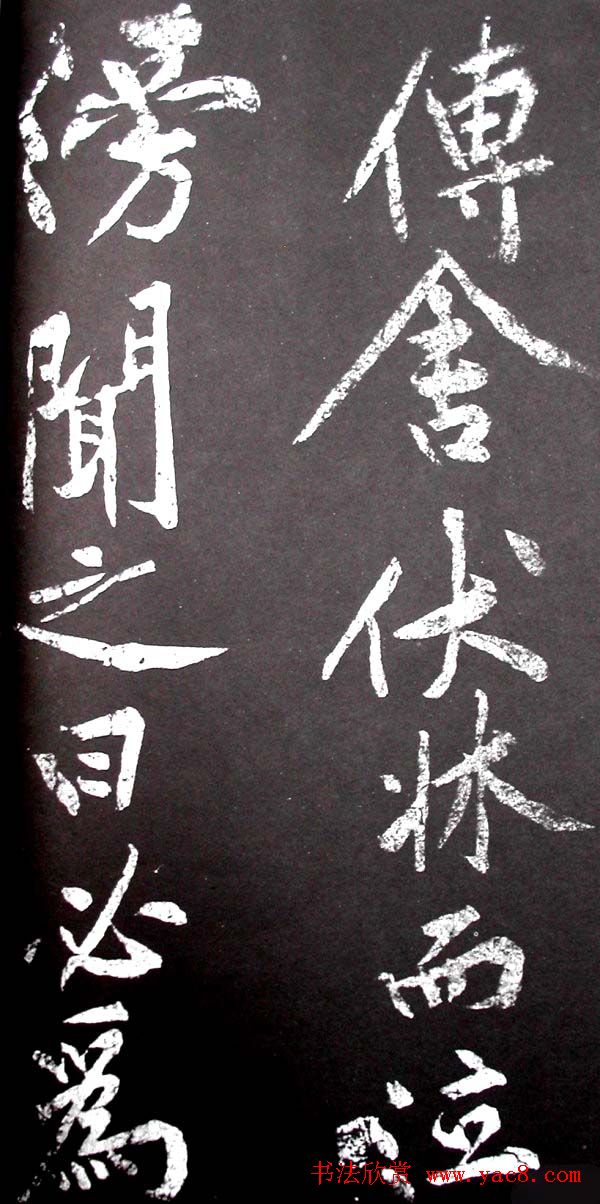 傳舍伏牀而泣
傍聞之曰必爲
书法欣赏 www.yac8.com